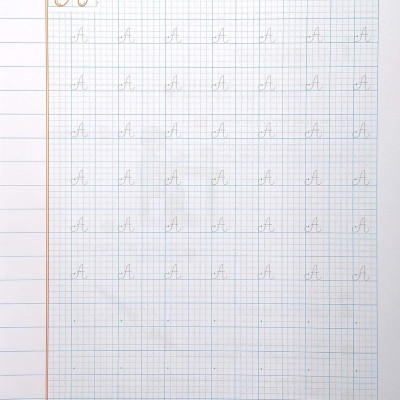 A A A A A A A
A A A A A A A
A A A A A A A
A A A A A A A
A A A A A A A
A A A A A A A